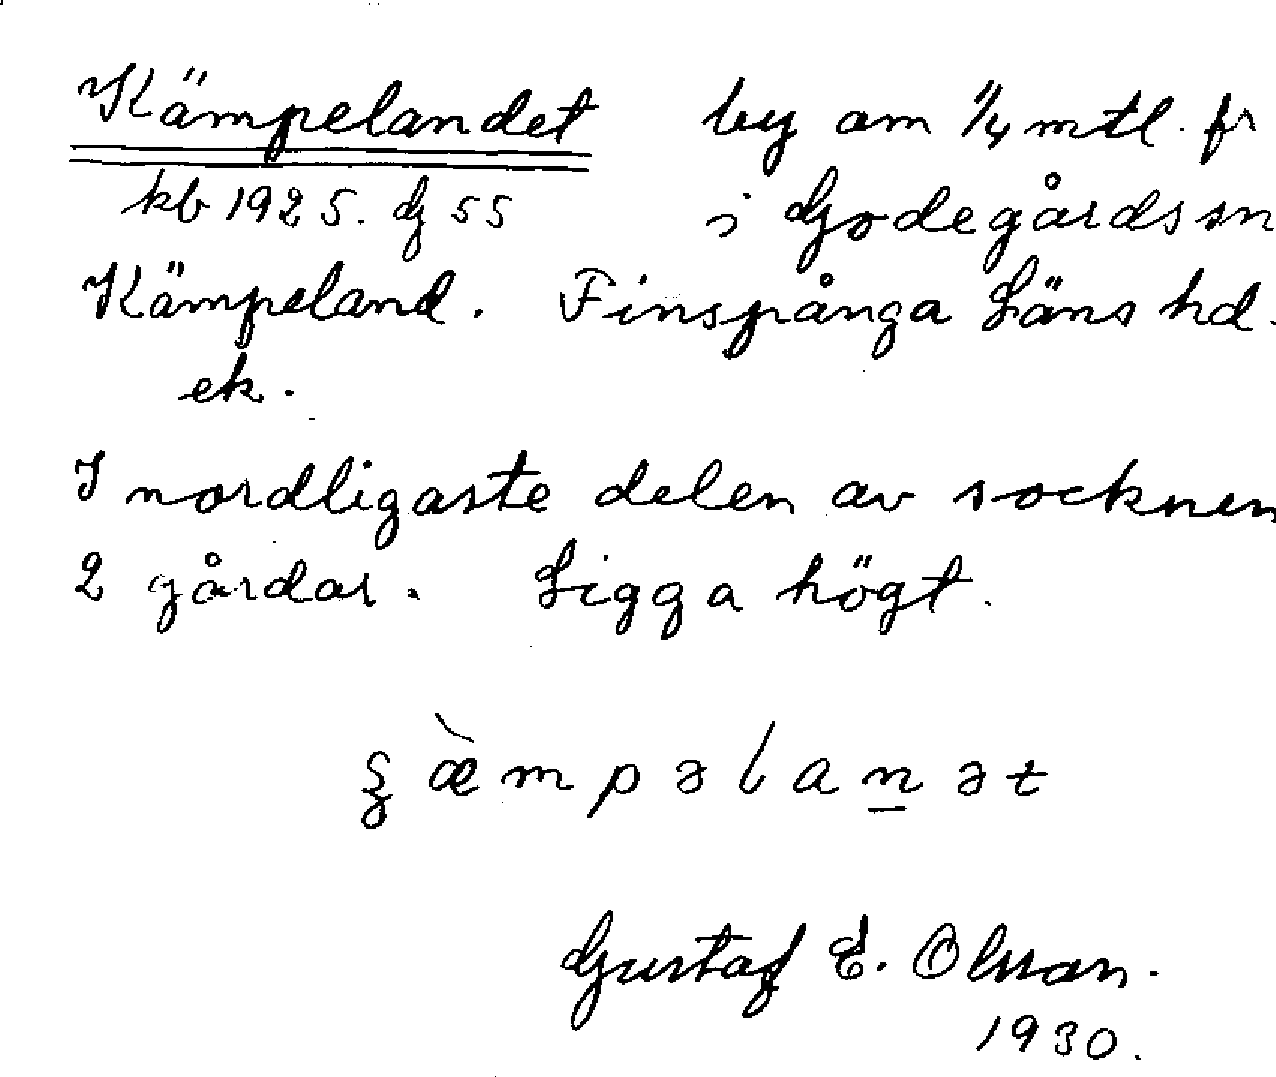 Kämpelandet by om 1/4 mtl. fr
kb 1925. G 55 i Godegårds sn
Kämpeland. Finspånga Läns hd.
ek.
I nordligaste delen av socknen
2 gårdar. Ligga högt.
æ̀mpəlanət
Gustaf E. Olsson.
1930.